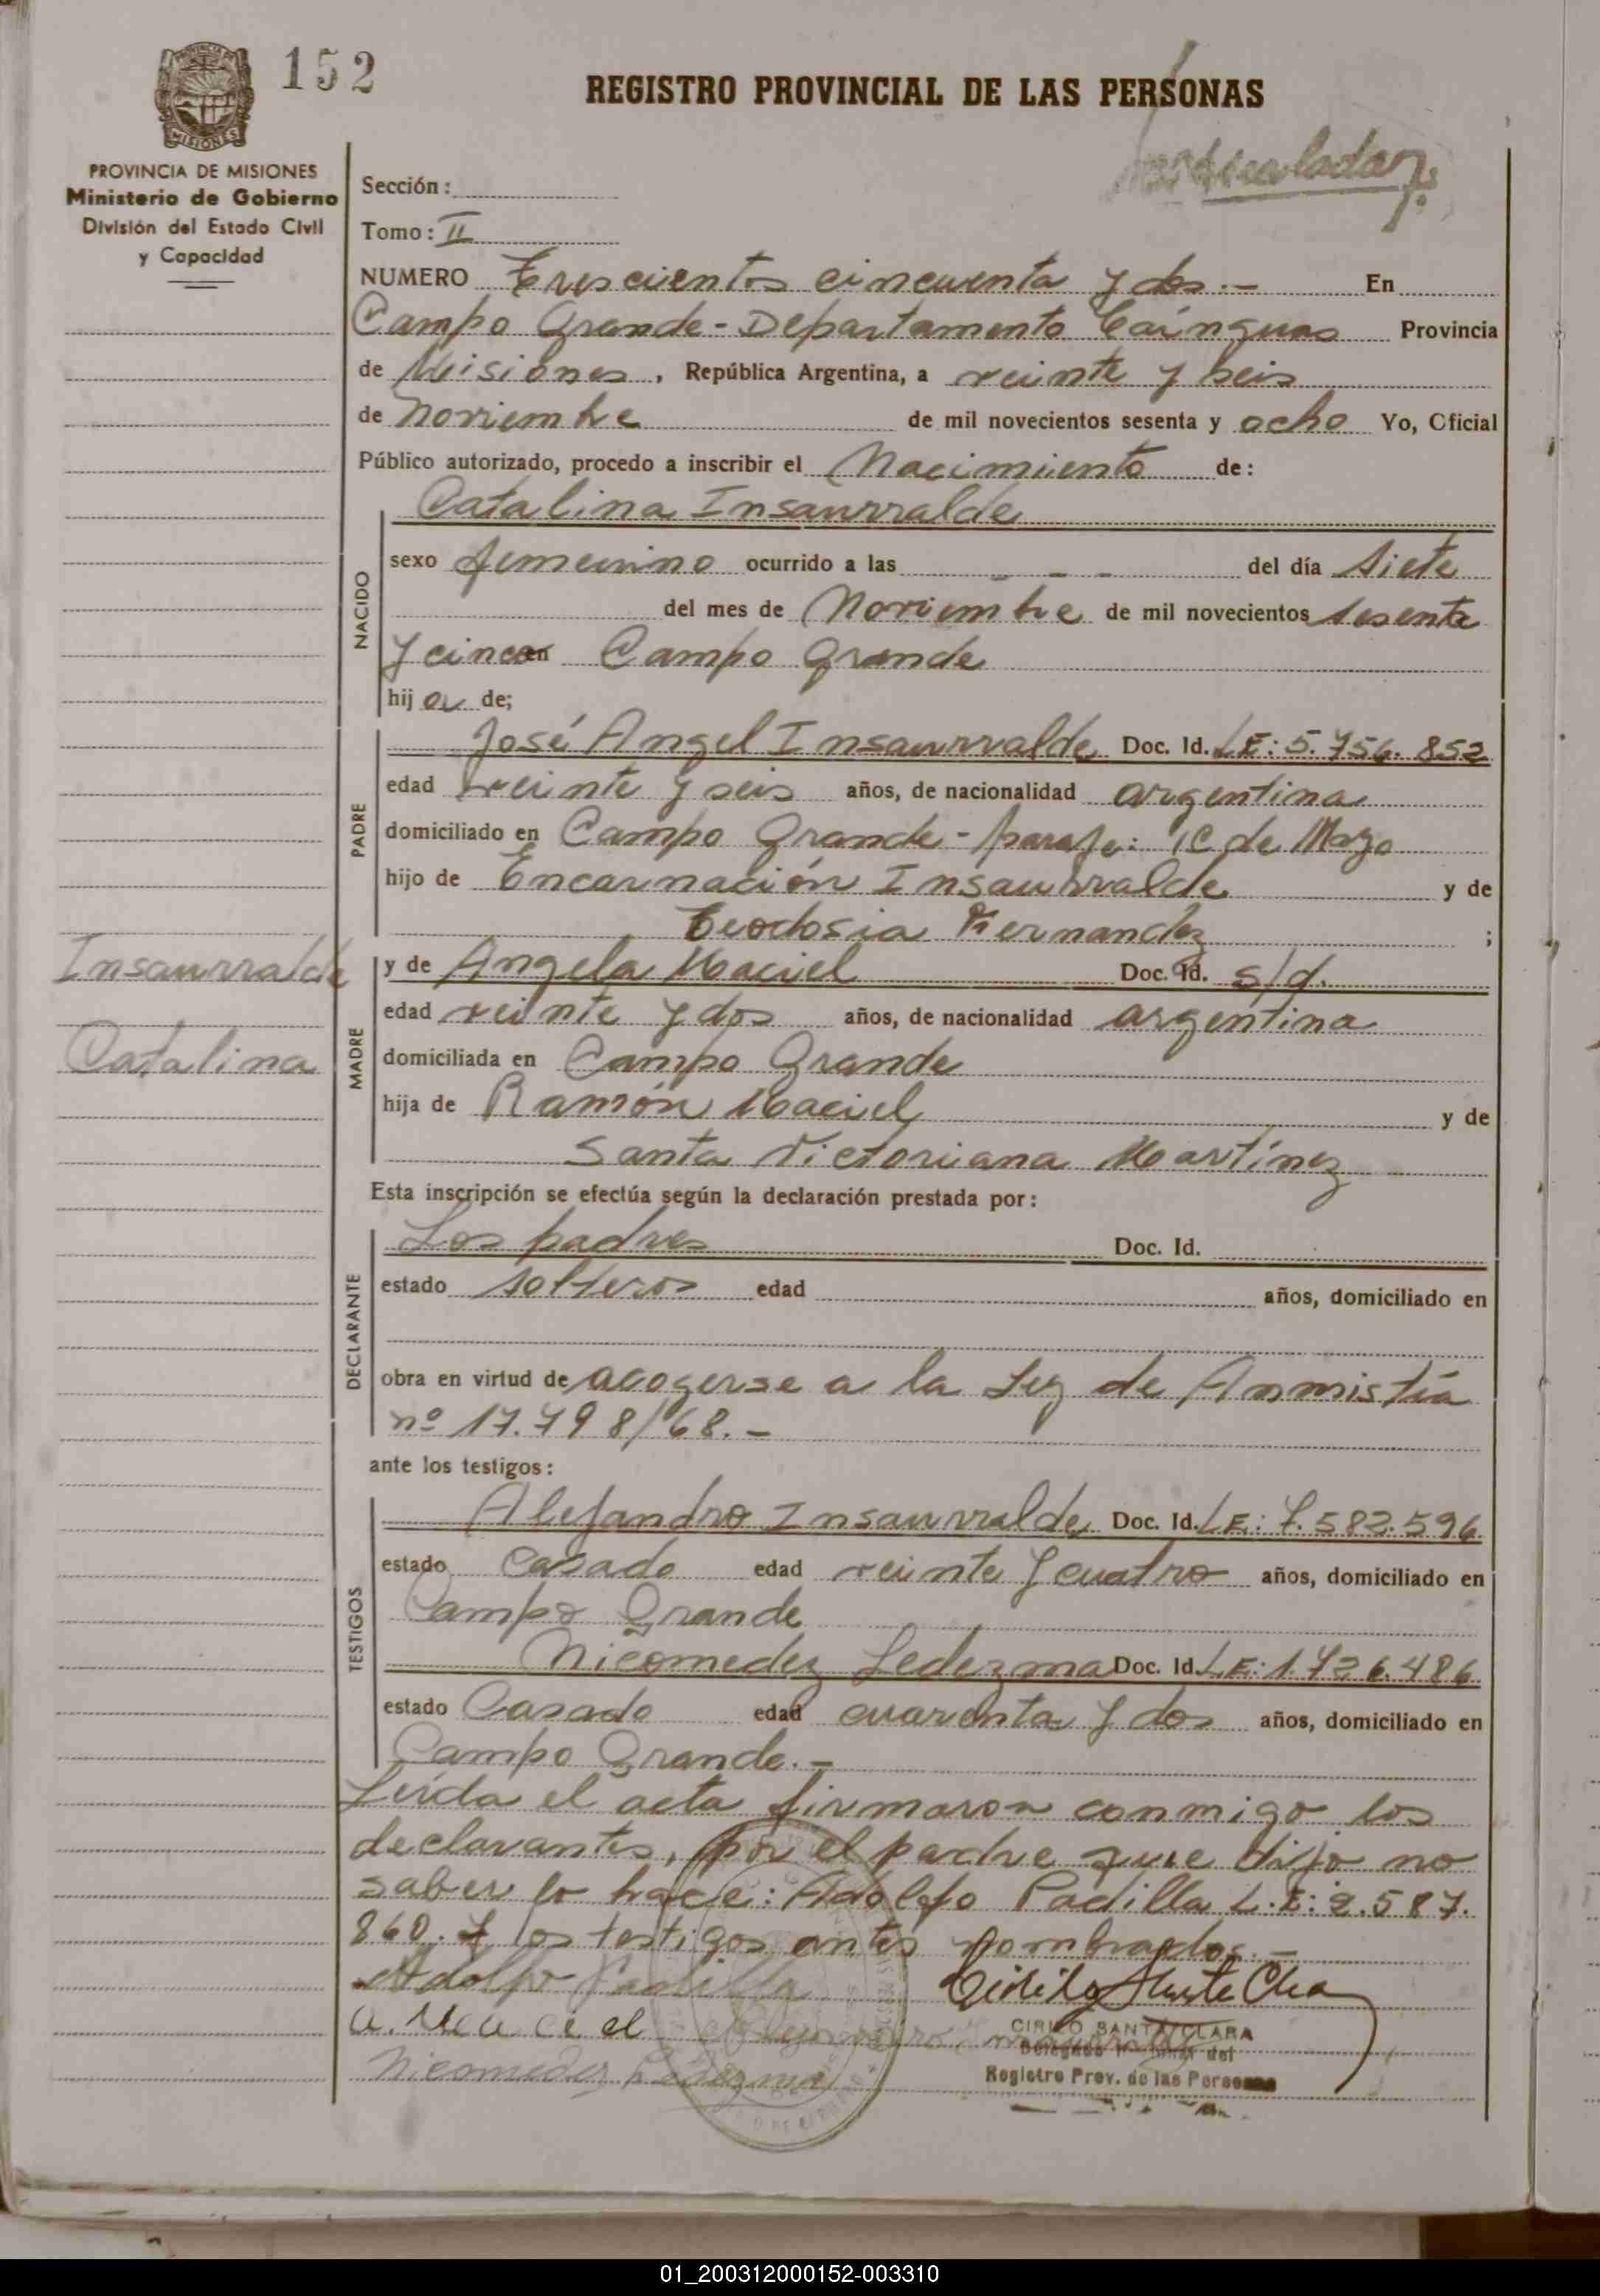 152
REGISTRO PROVINCIAL DE LAS PERSONAS
MISIONES
PROVINCIA DE MISIONES
Ministerio de Gobierno
División del Estado Civil
y Capacidad
Sección:
Tomo: II
NUMERO Trescientos cincuenta y dos.- En
Campo Grande - Departamento Cainguas Provincia
de Misiones, República Argentina, a veinte y seis
de noviembre de mil novecientos sesenta y ocho Yo, Oficial
Público autorizado, procedo a inscribir el Nacimiento de:
Catalina Insaurralde
NACIDO
sexo femenino ocurrido a las - - - del día siete
del mes de Noviembre de mil novecientos sesenta
y cinco en Campo Grande
hija de;
PADRE
José Angel Insaurralde Doc. Id. LE: 5.756.852
edad veinte y seis años, de nacionalidad argentina
domiciliado en Campo Grande - paraje: 1º de Mayo
hijo de Encarnación Insaurralde y de
Teodosia Fernandez ;
Insaurralde
Catalina
MADRE
y de Angela Maciel Doc. Id. s/d.
edad veinte y dos años, de nacionalidad argentina
domiciliada en Campo Grande
hija de Ramón Maciel y de
Santa Victoriana Martínez
Esta inscripción se efectúa según la declaración prestada por:
DECLARANTE
Los padres Doc. Id.
estado solteros edad años, domiciliado en
obra en virtud de acogerse a la Ley de Anmistía
nº 17.798/68.-
ante los testigos:
TESTIGOS
Alejandro Insaurralde Doc. Id. LE: 7.582.596
estado casado edad veinte y cuatro años, domiciliado en
Campo Grande
Nicomedez Ledezma Doc. Id. LE: 1.726.486
estado Casado edad cuarenta y dos años, domiciliado en
Campo Grande.-
Leída el acta firmaron conmigo los
declarantes, por el padre que dijo no
saber lo hace: Adolfo Padilla L.E: 2.587.
860. y los testigos antes nombrados.-
Adolfo Padilla
CIRILO SANTA CLARA
Registro Prov. de las Personas
Nicomedez Ledezma
01_200312000152-003310